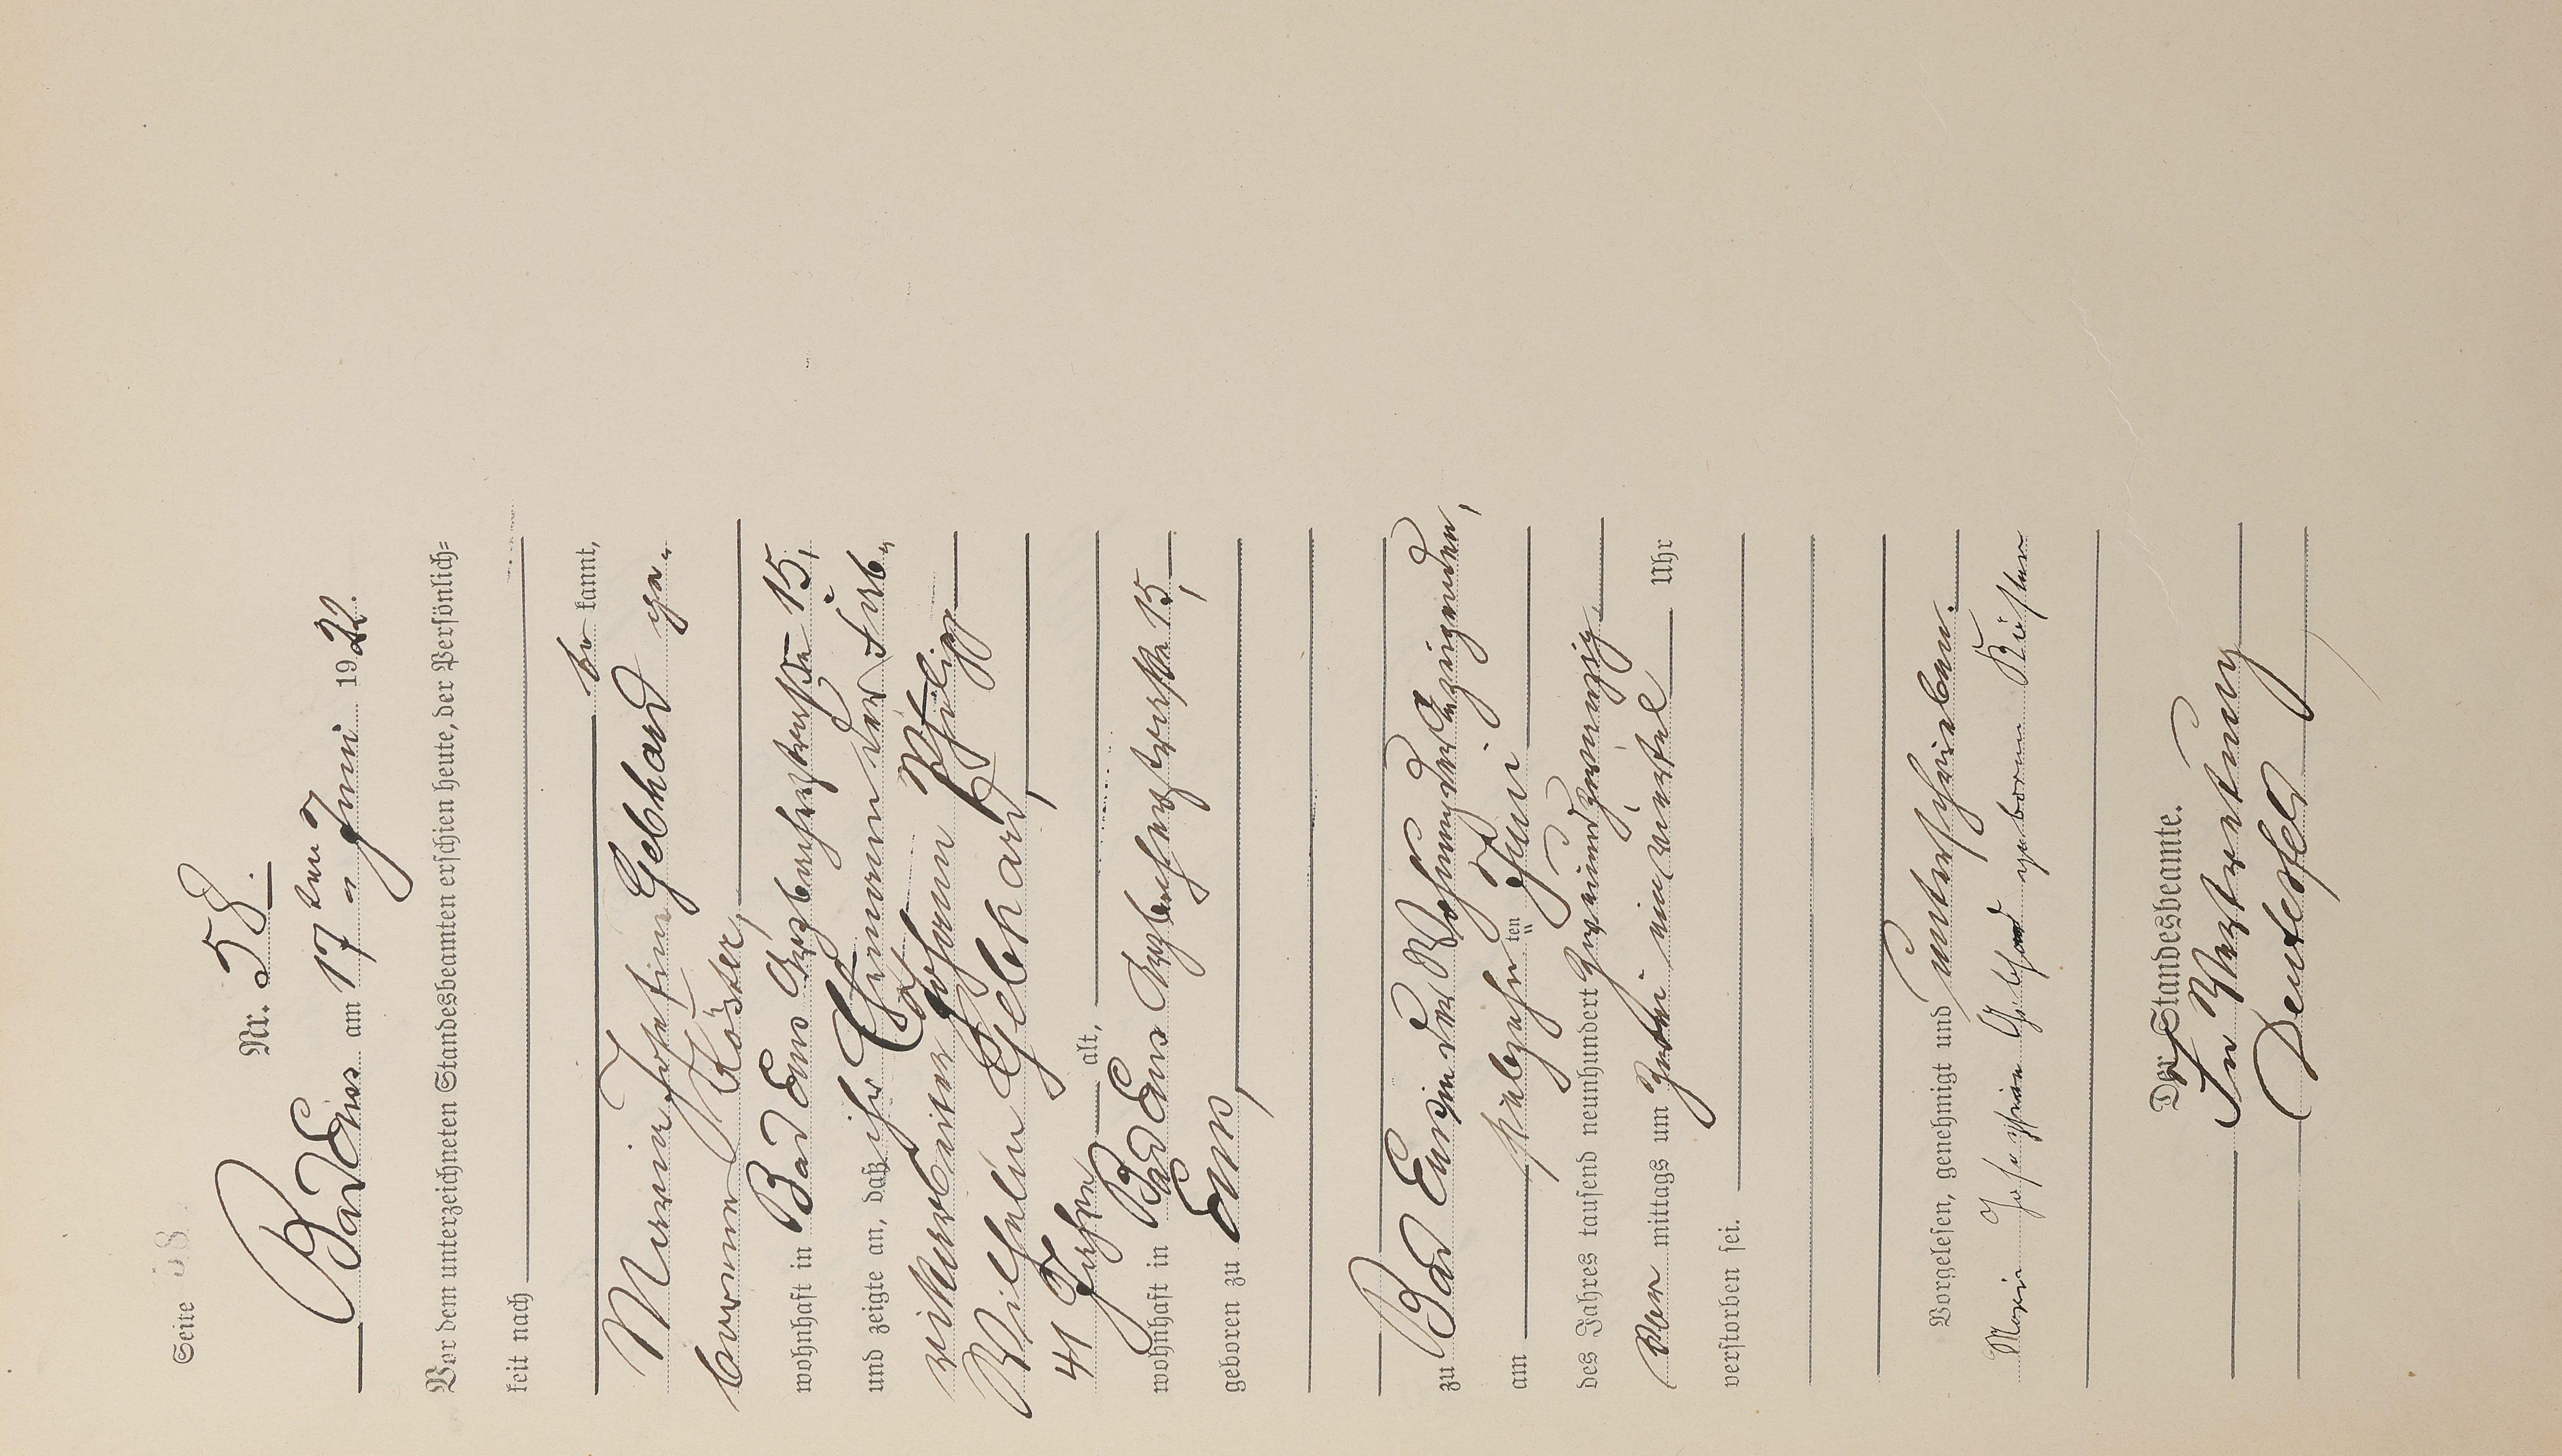 Seite 58.
Nr. 58.
Bad Ems am 17ten Juni 1922.
Vor dem unterzeichneten Standesbeamten erschien heute, der Persönlich=
keit nach
be kannt,
Maria Josefine Gebhard ge-
borene
wohnhaft in Bad Ems Arzbacherstraße 15,
und zeigte an, daß ihr Ehemann der
Johann Philipp
Wilhelm Gebhard,
41 Jahre alt,
wohnhaft in Bad Ems Arzbacherstraße 15,
geboren zu Ems,
zu Bad Ems in der Wohnung der Anzeigenden,
am siebzehn ten Juni
des Jahres tausend neunhundert zweiundzwanzig
Vor mittags um zwei ein viertel Uhr
verstorben sei.
Vorgelesen, genehmigt und unterschrieben.
Maria Josephine Gebhard geborene
Der Standesbeamte.
In Vertretung